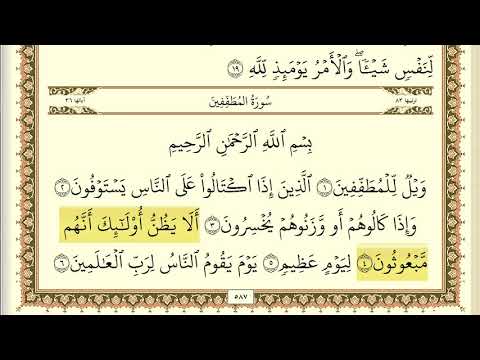 لِّنَفْسٍ شَيْـًٔا ۖ وَٱلْأَمْرُ يَوْمَئِذٍ لِّلَّهِ ١٩
ترتيبها ٨٣ سُورَةُ المُطَفِّفِينَ آياتها ٣٦
بِسْمِ ٱللَّهِ ٱلرَّحْمَٰنِ ٱلرَّحِيمِ
وَيْلٌ لِّلْمُطَفِّفِينَ ١ ٱلَّذِينَ إِذَا ٱكْتَالُوا۟ عَلَى ٱلنَّاسِ يَسْتَوْفُونَ ٢
وَإِذَا كَالُوهُمْ أَو وَّزَنُوهُمْ يُخْسِرُونَ ٣ أَلَا يَظُنُّ أُو۟لَٰٓئِكَ أَنَّهُم
مَّبْعُوثُونَ ٤ لِيَوْمٍ عَظِيمٍ ٥ يَوْمَ يَقُومُ ٱلنَّاسُ لِرَبِّ ٱلْعَٰلَمِينَ ٦
٥٨٧